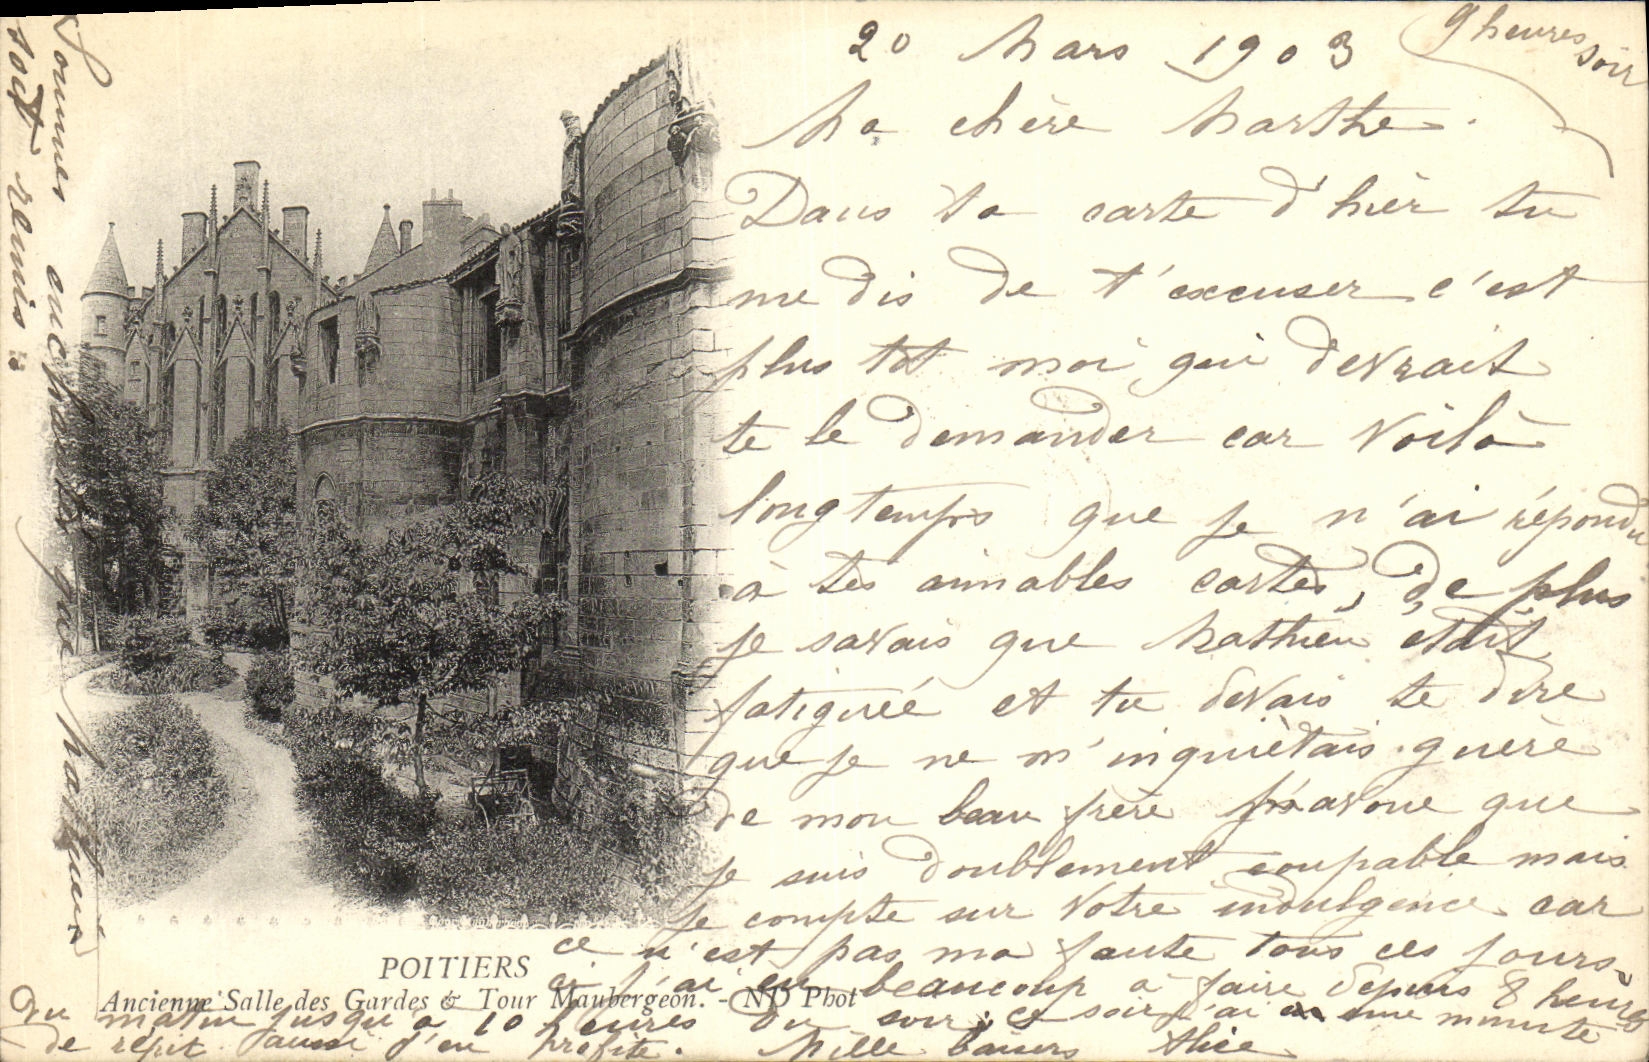 20 Mars 1903
9 heures
soir
Ma chère Marthe.
Dans ta carte d'hier tu
me dis de t'excuser c'est
plus tôt moi qui devrait
te le demander car voilà
longtemps que je n'ai répondu
à tes aimables cartes, de plus
je savais que Mathieu était
fatiguée et tu devais te dire
que je ne m'inquiètais guère
de mon beau frère j'avoue que
je suis doublement coupable mais
je compte sur votre indulgence car
ce n'est pas ma faute tous ces jours
ci j'ai eu beaucoup à faire depuis 8 heures
du matin jusqu'à 10 heures du soir; ce soir j'ai une minute
de répit aussi j'en profite. Mille baisers Alice
Sommes enchantés que Mathieu
soit remis.
POITIERS
Ancienne Salle des Gardes & Tour Maubergeon. - ND Phot